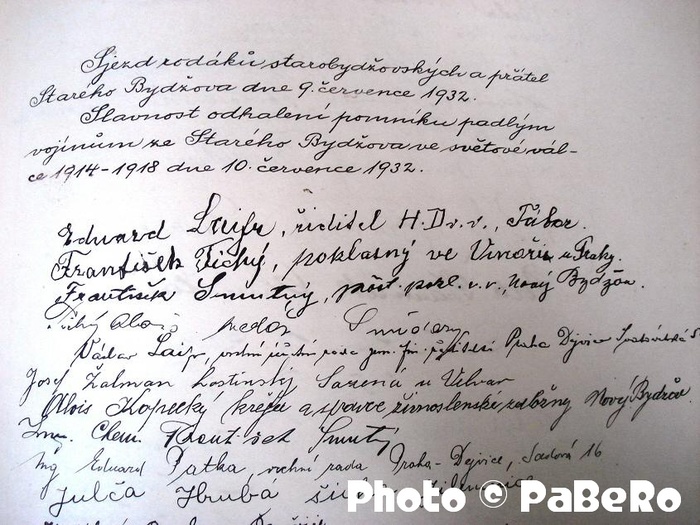 Sjezd rodáků starobydžovských a přátel
Starého Bydžova dne 9. července 1932.
Slavnost odhalení pomníku padlým
vojínům ze Starého Bydžova ve světové vál-
ce 1914-1918 dne 10. července 1932.
Eduard Laifr, řiditel H. Dv. v., Tábor.
František Tichý, pokladný ve Vinoři u Prahy.
František Smutný, v.v., Nový Bydžov.
Tichý Alois Smidary
Václav Laifr, Praha Dejvice
Josef Žalman hostinský Sazená u Velvar
Alois Kopecký krejčí a správce živnostenské Nový Bydžov.
Chem. Smutný
Ing Eduard Patka, vrchní rada Praha-Dejvice, Sadová 16
Julča Hrubá
Photo © PaBeRo